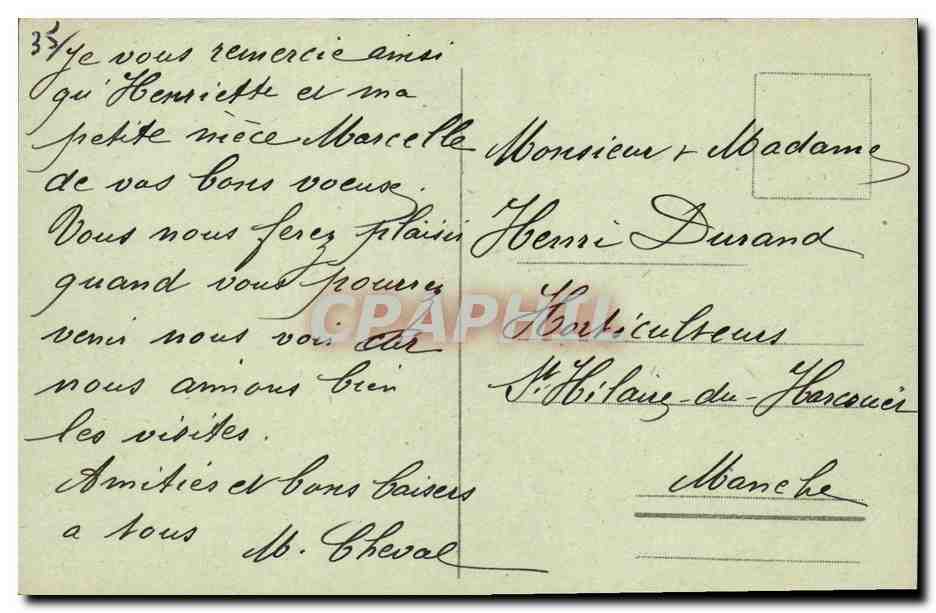 35/
Je vous remercie ainsi
qu'Henriette et ma
petite nièce Marcelle
de vos bons voeux.
Vous nous ferez plaisir
quand vous pourrez
venir nous voir car
nous aimons bien
les visites.
Amitiés et bons baisers
a tous
M. Cheval
Monsieur & Madame
Henri Durand
Horticulteurs
St Hilaire-du-Harcouër
Manche
CPAPHIL